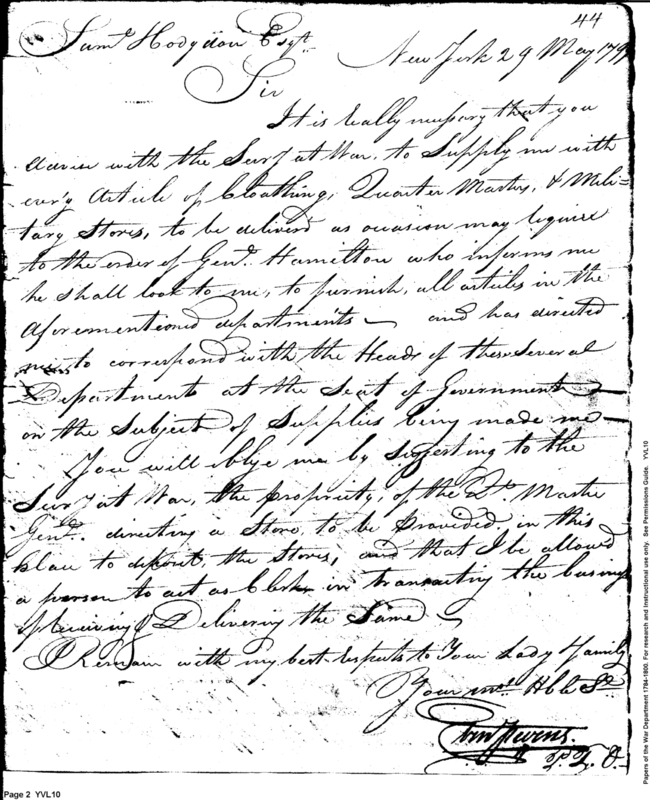 44
Sam.l Hodgdon Esq.r
New York 29 May 1799
Sir
It is really nessary that you
advise with the Secry at War, to Supply me with
every Article of Cloathing, Quarter Masters, & Mili=
tary Stores, to be deliver'd as occasion may require
to the order of Gen.l Hamilton who informs me
he shall look to me, to furnish, all articles in the
aforementioned departments — and has directed
me to correspond with the Heads of these Several
Departments at the Seat of Government
on the Subject of Supplies being made me —
You will oblige me by Suggesting to the
Secry at War, the propriety, of the Qr. Master
Genl. directing a Store, to be provided, in this
place to deposit, the Stores, and that I be allow'd
a person to act as Clerk in transacting the busings
receiving & Delivering the Same —
I Remain with my best respects to Your Lady & family
Your mo.t Hble St
Ebnr Stevens.
Page 2 YVL10
Papers of the War Department 1784-1800. For research and instructional use only. See Permissions Guide. YVL10